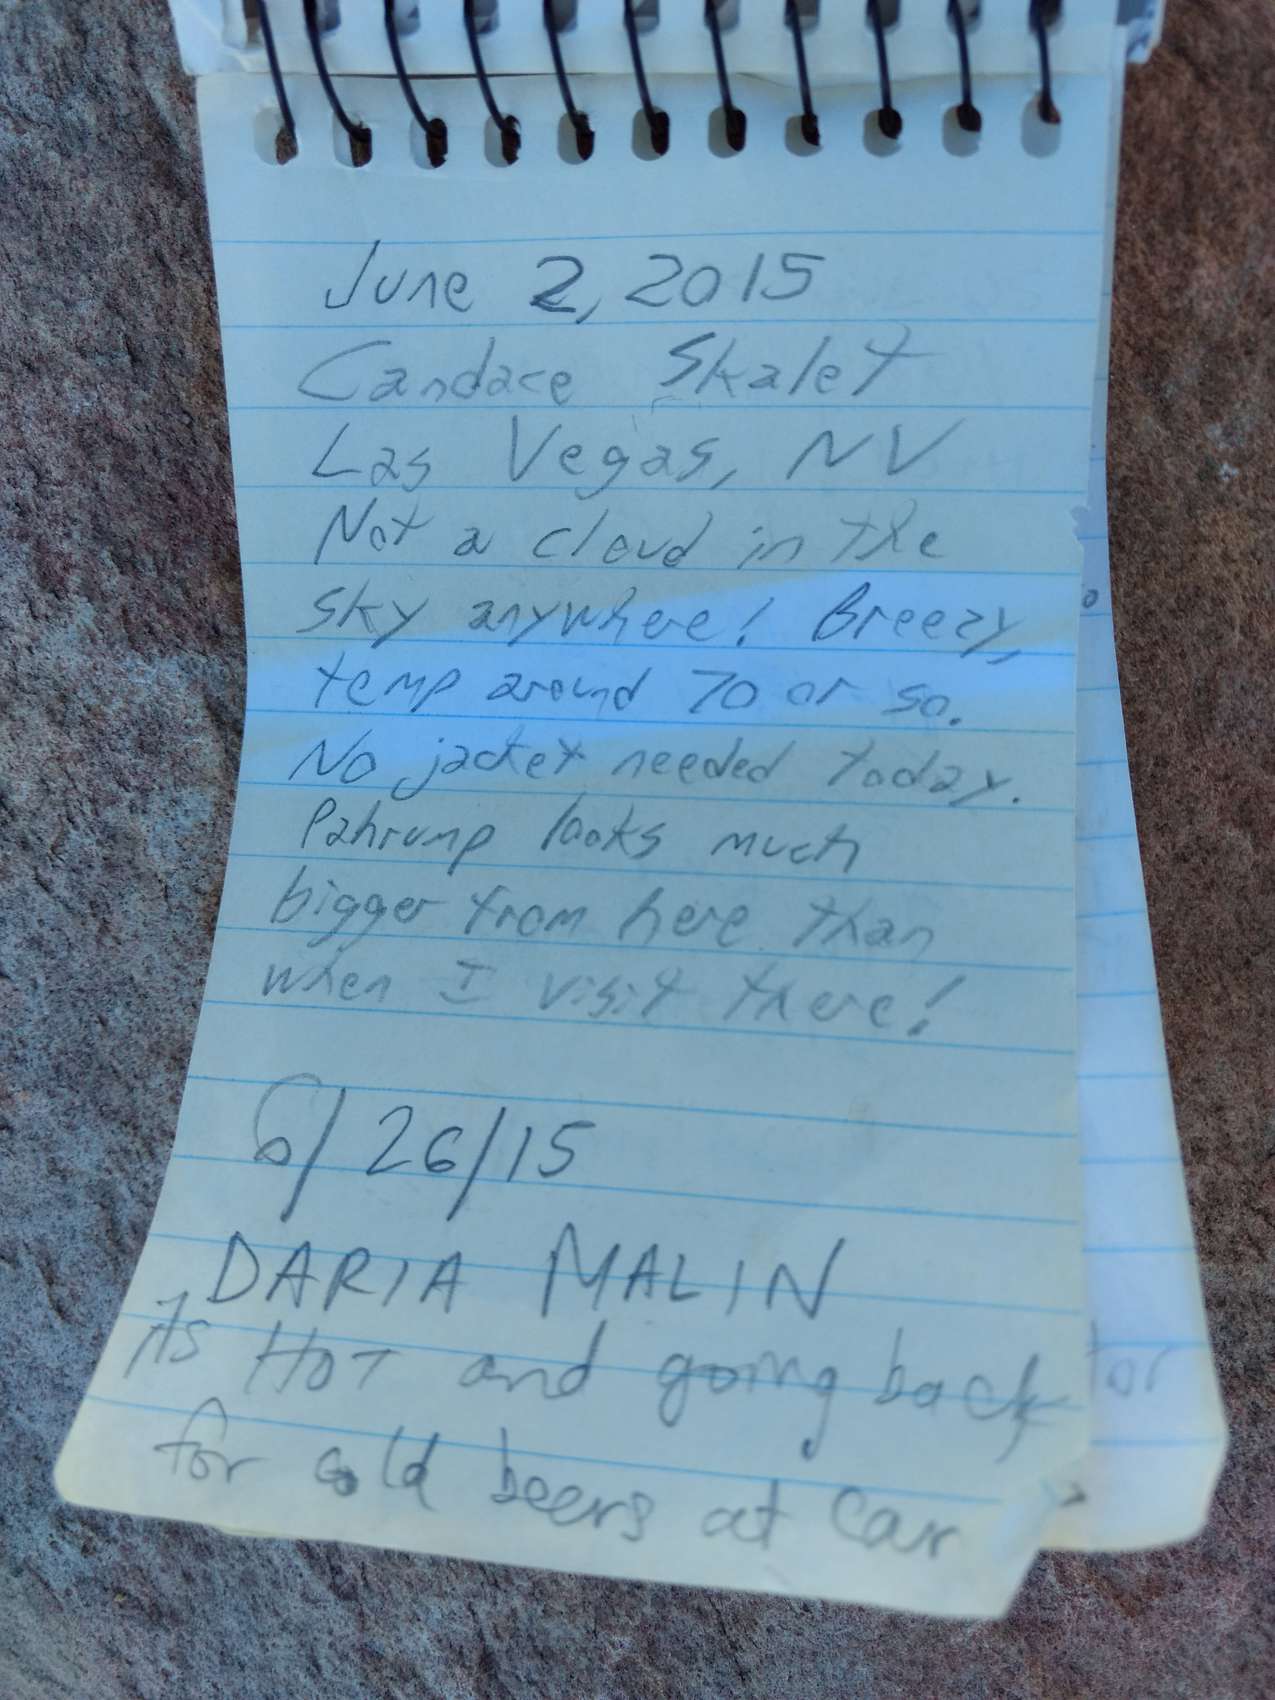 June 2, 2015
Candace Skalet
Las Vegas, NV
Not a cloud in the
sky anywhere! Breezy,
temp around 70 or so.
No jacket needed today.
Pahrump looks much
bigger from here than
when I visit there!
6/26/15
DARIA MALIN
its HOT and going back
for cold beers at car